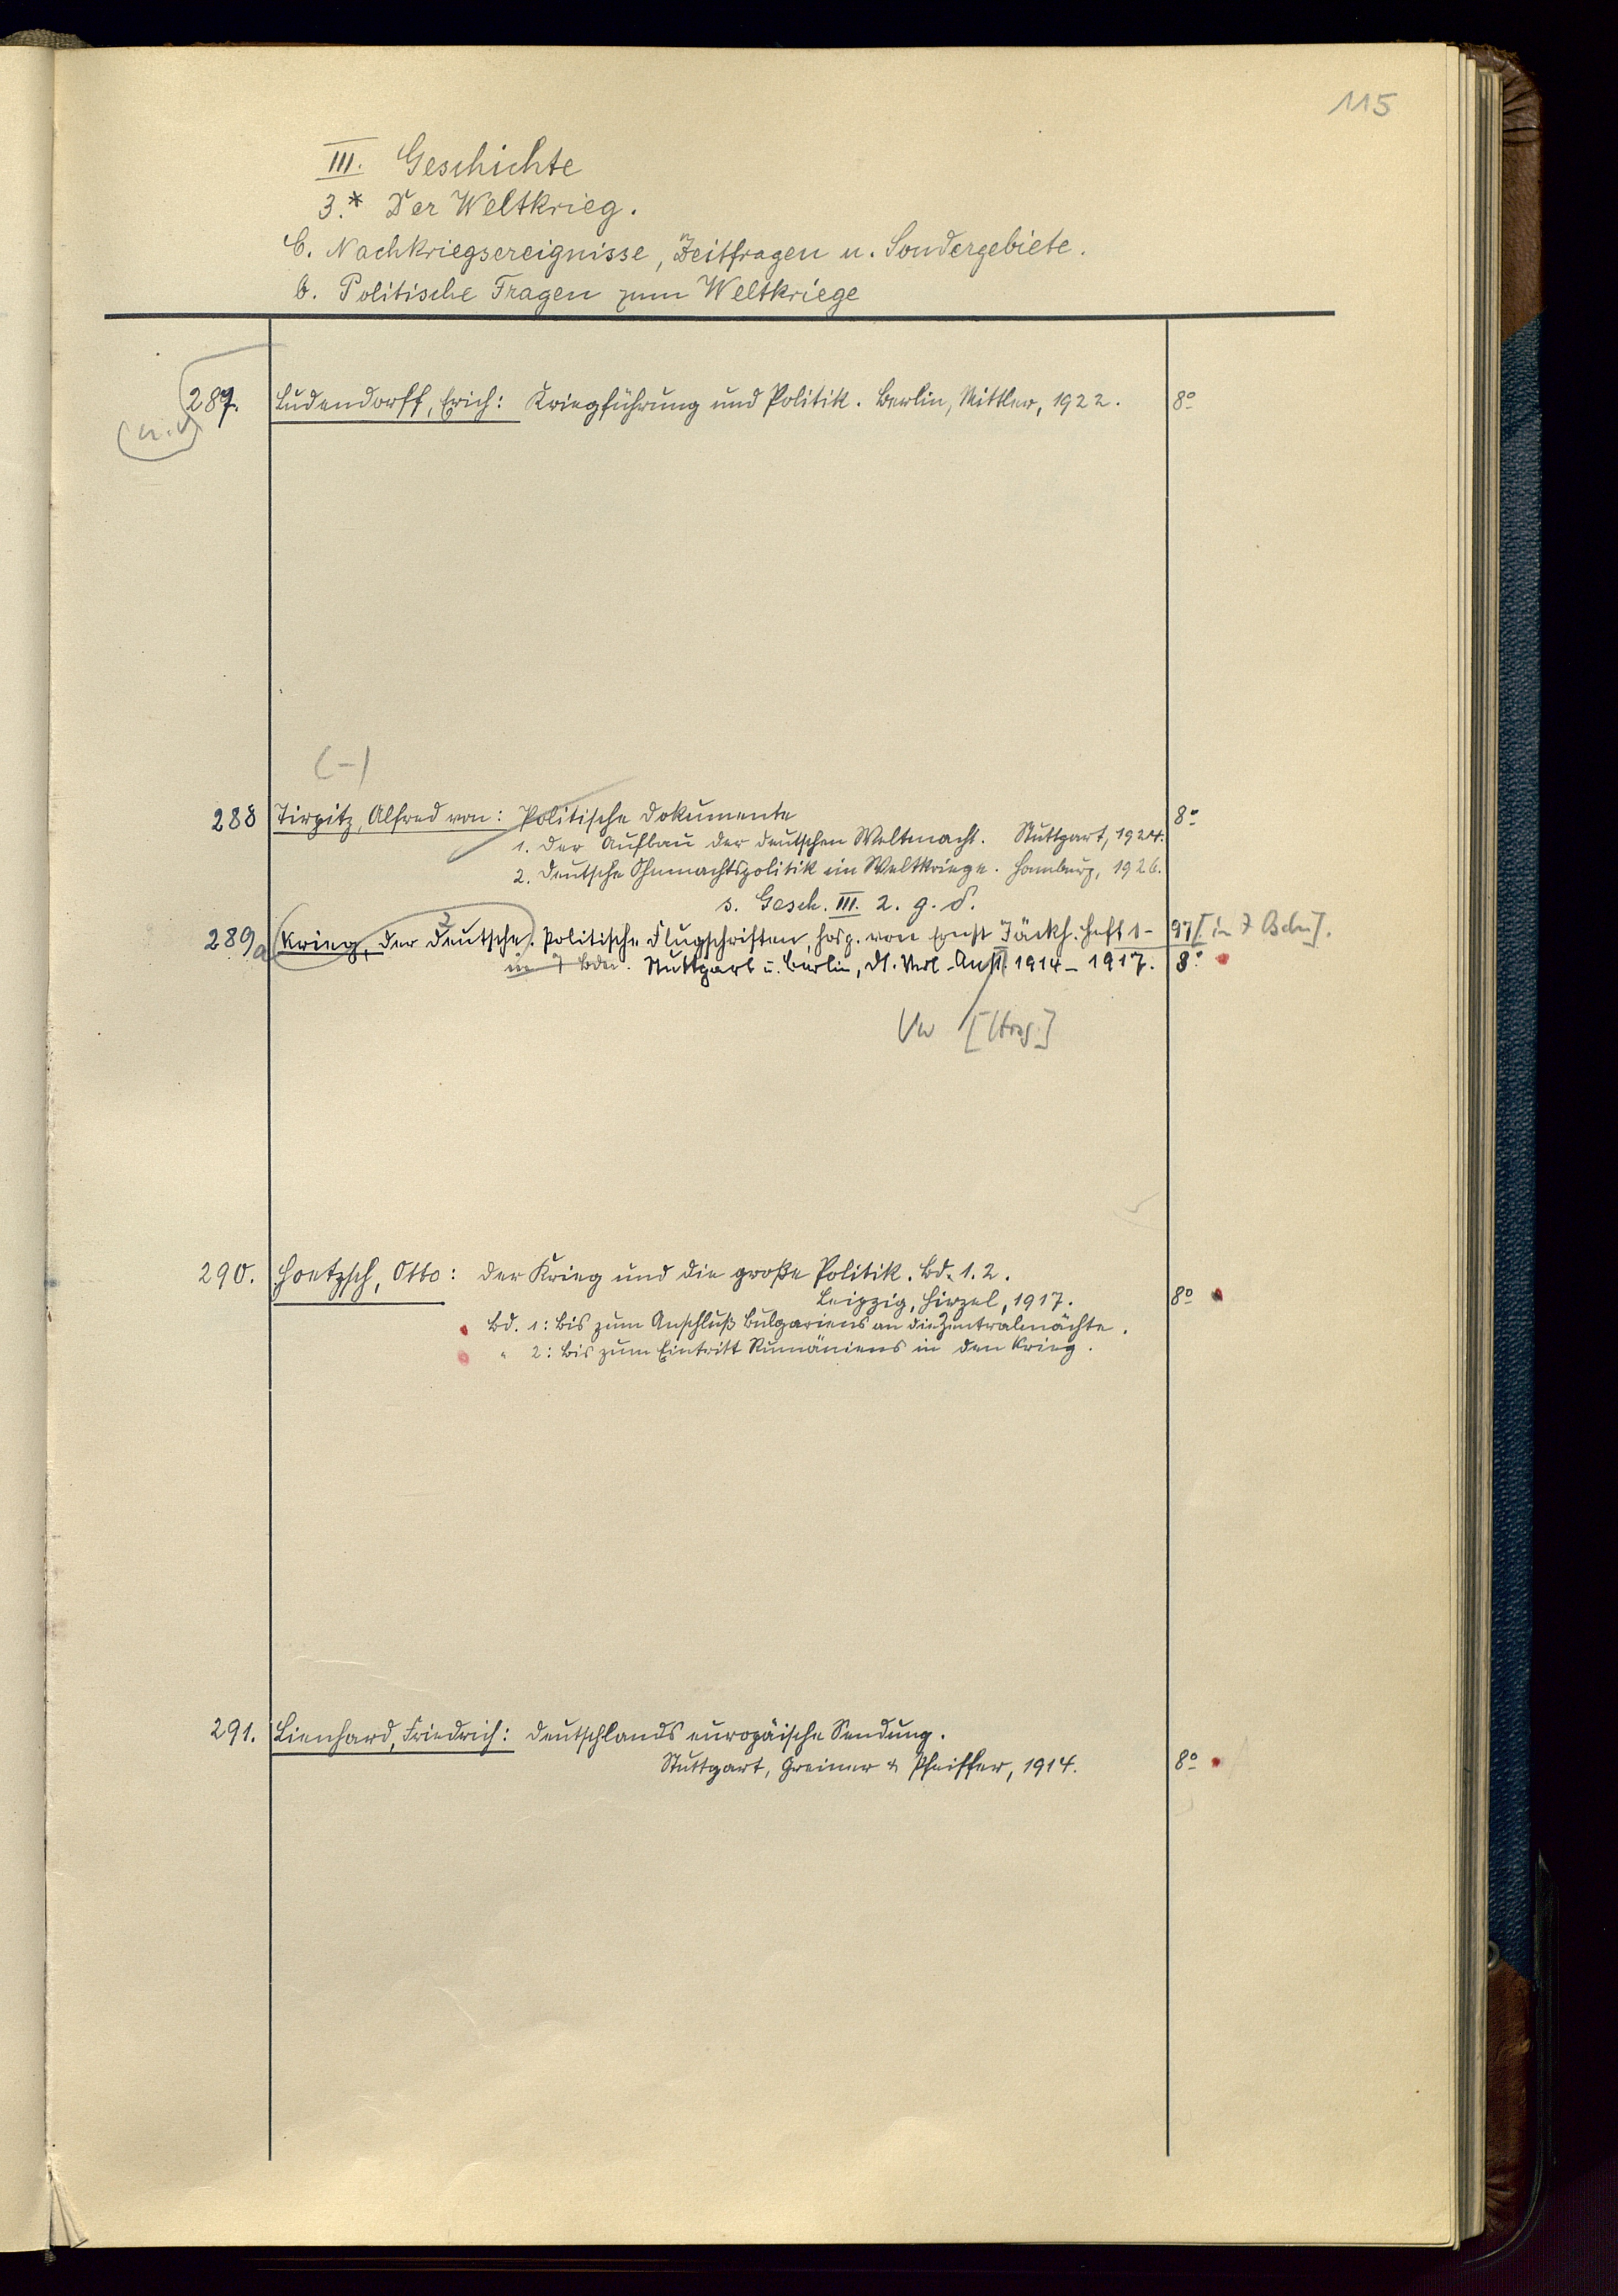 115
III. Geschichte
3.* Der Weltkrieg.
C. Nachkriegsereignisse, Zeitfragen u. Sondergebiete.
b. Politische Fragen zum Weltkriege
287. Ludendorff, Erich: Kriegführung und Politik. Berlin, Mittler, 1922. 8°
(-)
288 Tirpitz, Alfred von: Politische Dokumente 8°
1. Der Aufbau der deutschen Weltmacht. Stuttgart, 1924.
2. Deutsche Ohnmachtspolitik im Weltkriege. Hamburg, 1926.
s. Gesch. III. 2. g. δ.
289a Krieg, der Deutsche. Politische Flugschriften, hrsg. von Ernst Jäckh. Heft 1- 97 [in 7 Bdn].
in 7 Bdn. Stuttgart u. Berlin, Dt. Verl.-Anst. 1914-1917. 8°
Vw [Hrsg.]
290. Hoetzsch, Otto: Der Krieg und die große Politik. Bd. 1.2.
Leipzig, Hirzel, 1917. 8°
Bd. 1: Bis zum Anschluß Bulgariens an die Zentralmächte.
" 2: Bis zum Eintritt Rumäniens in den Krieg.
291. Lienhard, Friedrich: Deutschlands europäische Sendung.
Stuttgart, Greiner & Pfeiffer, 1914. 8°